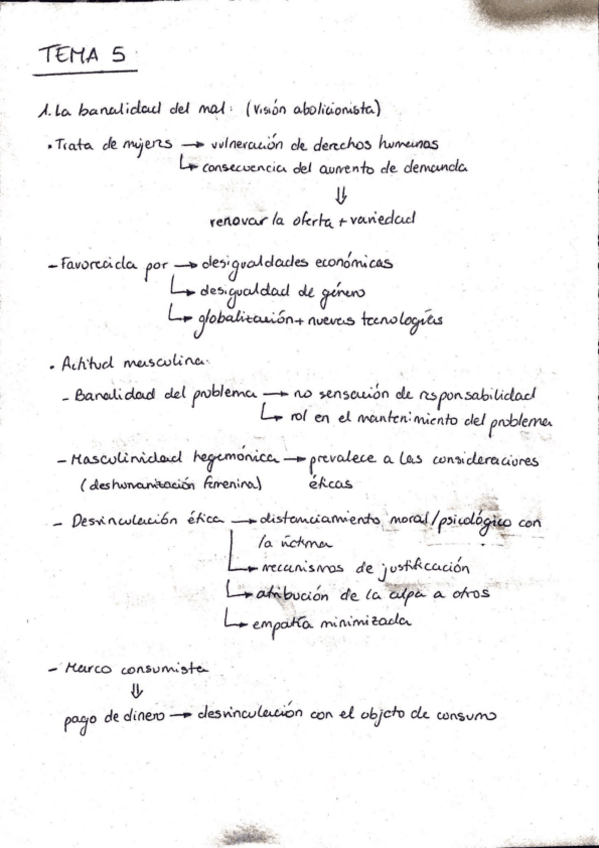 TEMA 5
1. La banalidad del mal: (visión abolicionista)
• Trata de mujeres → vulneración de derechos humanos
↳ consecuencia del aumento de demanda
⇓
renovar la oferta + variedad
- Favorecida por → desigualdades económicas
↳ desigualdad de género
↳ globalización + nuevas tecnologías
• Actitud masculina:
- Banalidad del problema → no sensación de responsabilidad
↳ rol en el mantenimiento del problema
- Masculinidad hegemónica → prevalece a las consideraciones
(deshumanización femenina) éticas
- Desvinculación ética → distanciamiento moral/psicológico con
la víctima
↳ mecanismos de justificación
↳ atribución de la culpa a otros
↳ empatía minimizada
- Marco consumista
⇓
pago de dinero → desvinculación con el objeto de consumo